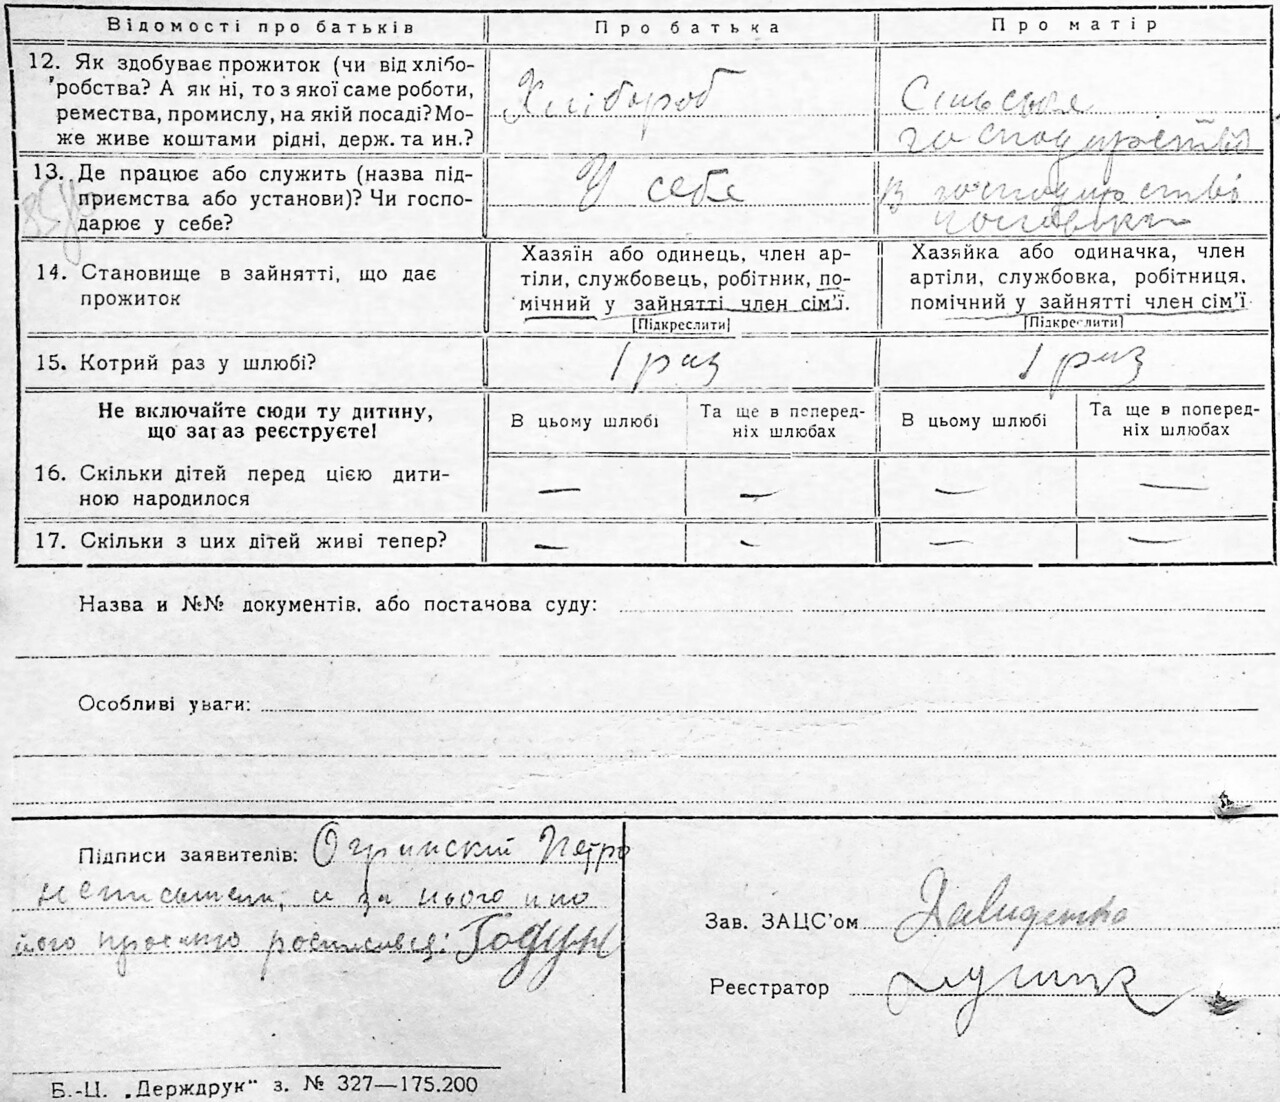 Відомості про батьків Про батька Про матір
12. Як здобуває прожиток (чи від хлібо-
робства? А як ні, то з якої саме роботи,
ремества, промислу, на якій посаді? Мо-
же живе коштами рідні, держ. та ин.?
Хлібороб
Сільське
господарство
13. Де працює або служить (назва під-
приємства або установи)? Чи госпо-
дарює у себе?
У себе
В господарстві
чоловіка
14. Становище в зайнятті, що дає
прожиток
Хазяїн або одинець, член ар-
тіли, службовець, робітник, по-
мічний у зайнятті член сім'ї.
[Підкреслити]
Хазяйка або одиначка, член
артіли, службовка, робітниця,
помічний у зайнятті член сім'ї
[Підкреслити]
15. Котрий раз у шлюбі? 1 раз 1 раз
Не включайте сюди ту дитину,
що зараз реєструєте!
В цьому шлюбі
Та ще в поперед-
ніх шлюбах
В цьому шлюбі
Та ще в поперед-
ніх шлюбах
16. Скільки дітей перед цією дити-
ною народилося
— — — —
17. Скільки з цих дітей живі тепер? — - — —
Назва и №№ документів, або постачова суду:
Особливі уваги:
Підписи заявителів: Петро
за нього
його росписався:
Зав. ЗАЦС'ом Давиденко
Реєстратор
Б.-Ц. „Держдрук" з. № 327—175.200